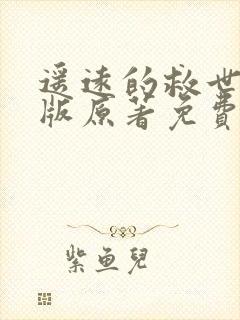 遥远的救世
版原著免费
紫鱼儿